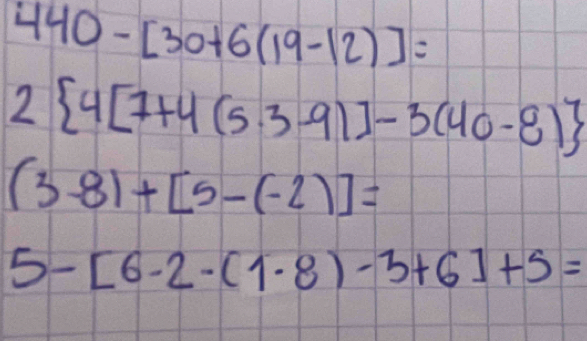 440-[30+6(19-12)]=
2{4[7+4(5.3-9)]-3(40-8)}
(3-8)+[5-(-2)]=
5-[6-2-(1-8)-3+6]+5=